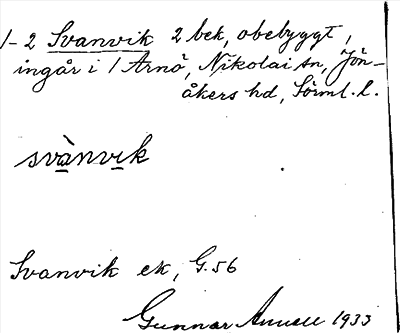 1-2 Svanvik 2 bek, obebyggt,
ingår i 1 Arnö, Nikolai sn, Jön-
åkers hd, Sörml. l.
svànvik
Svanvik ek, G. 56
Gunnar Annell 1933